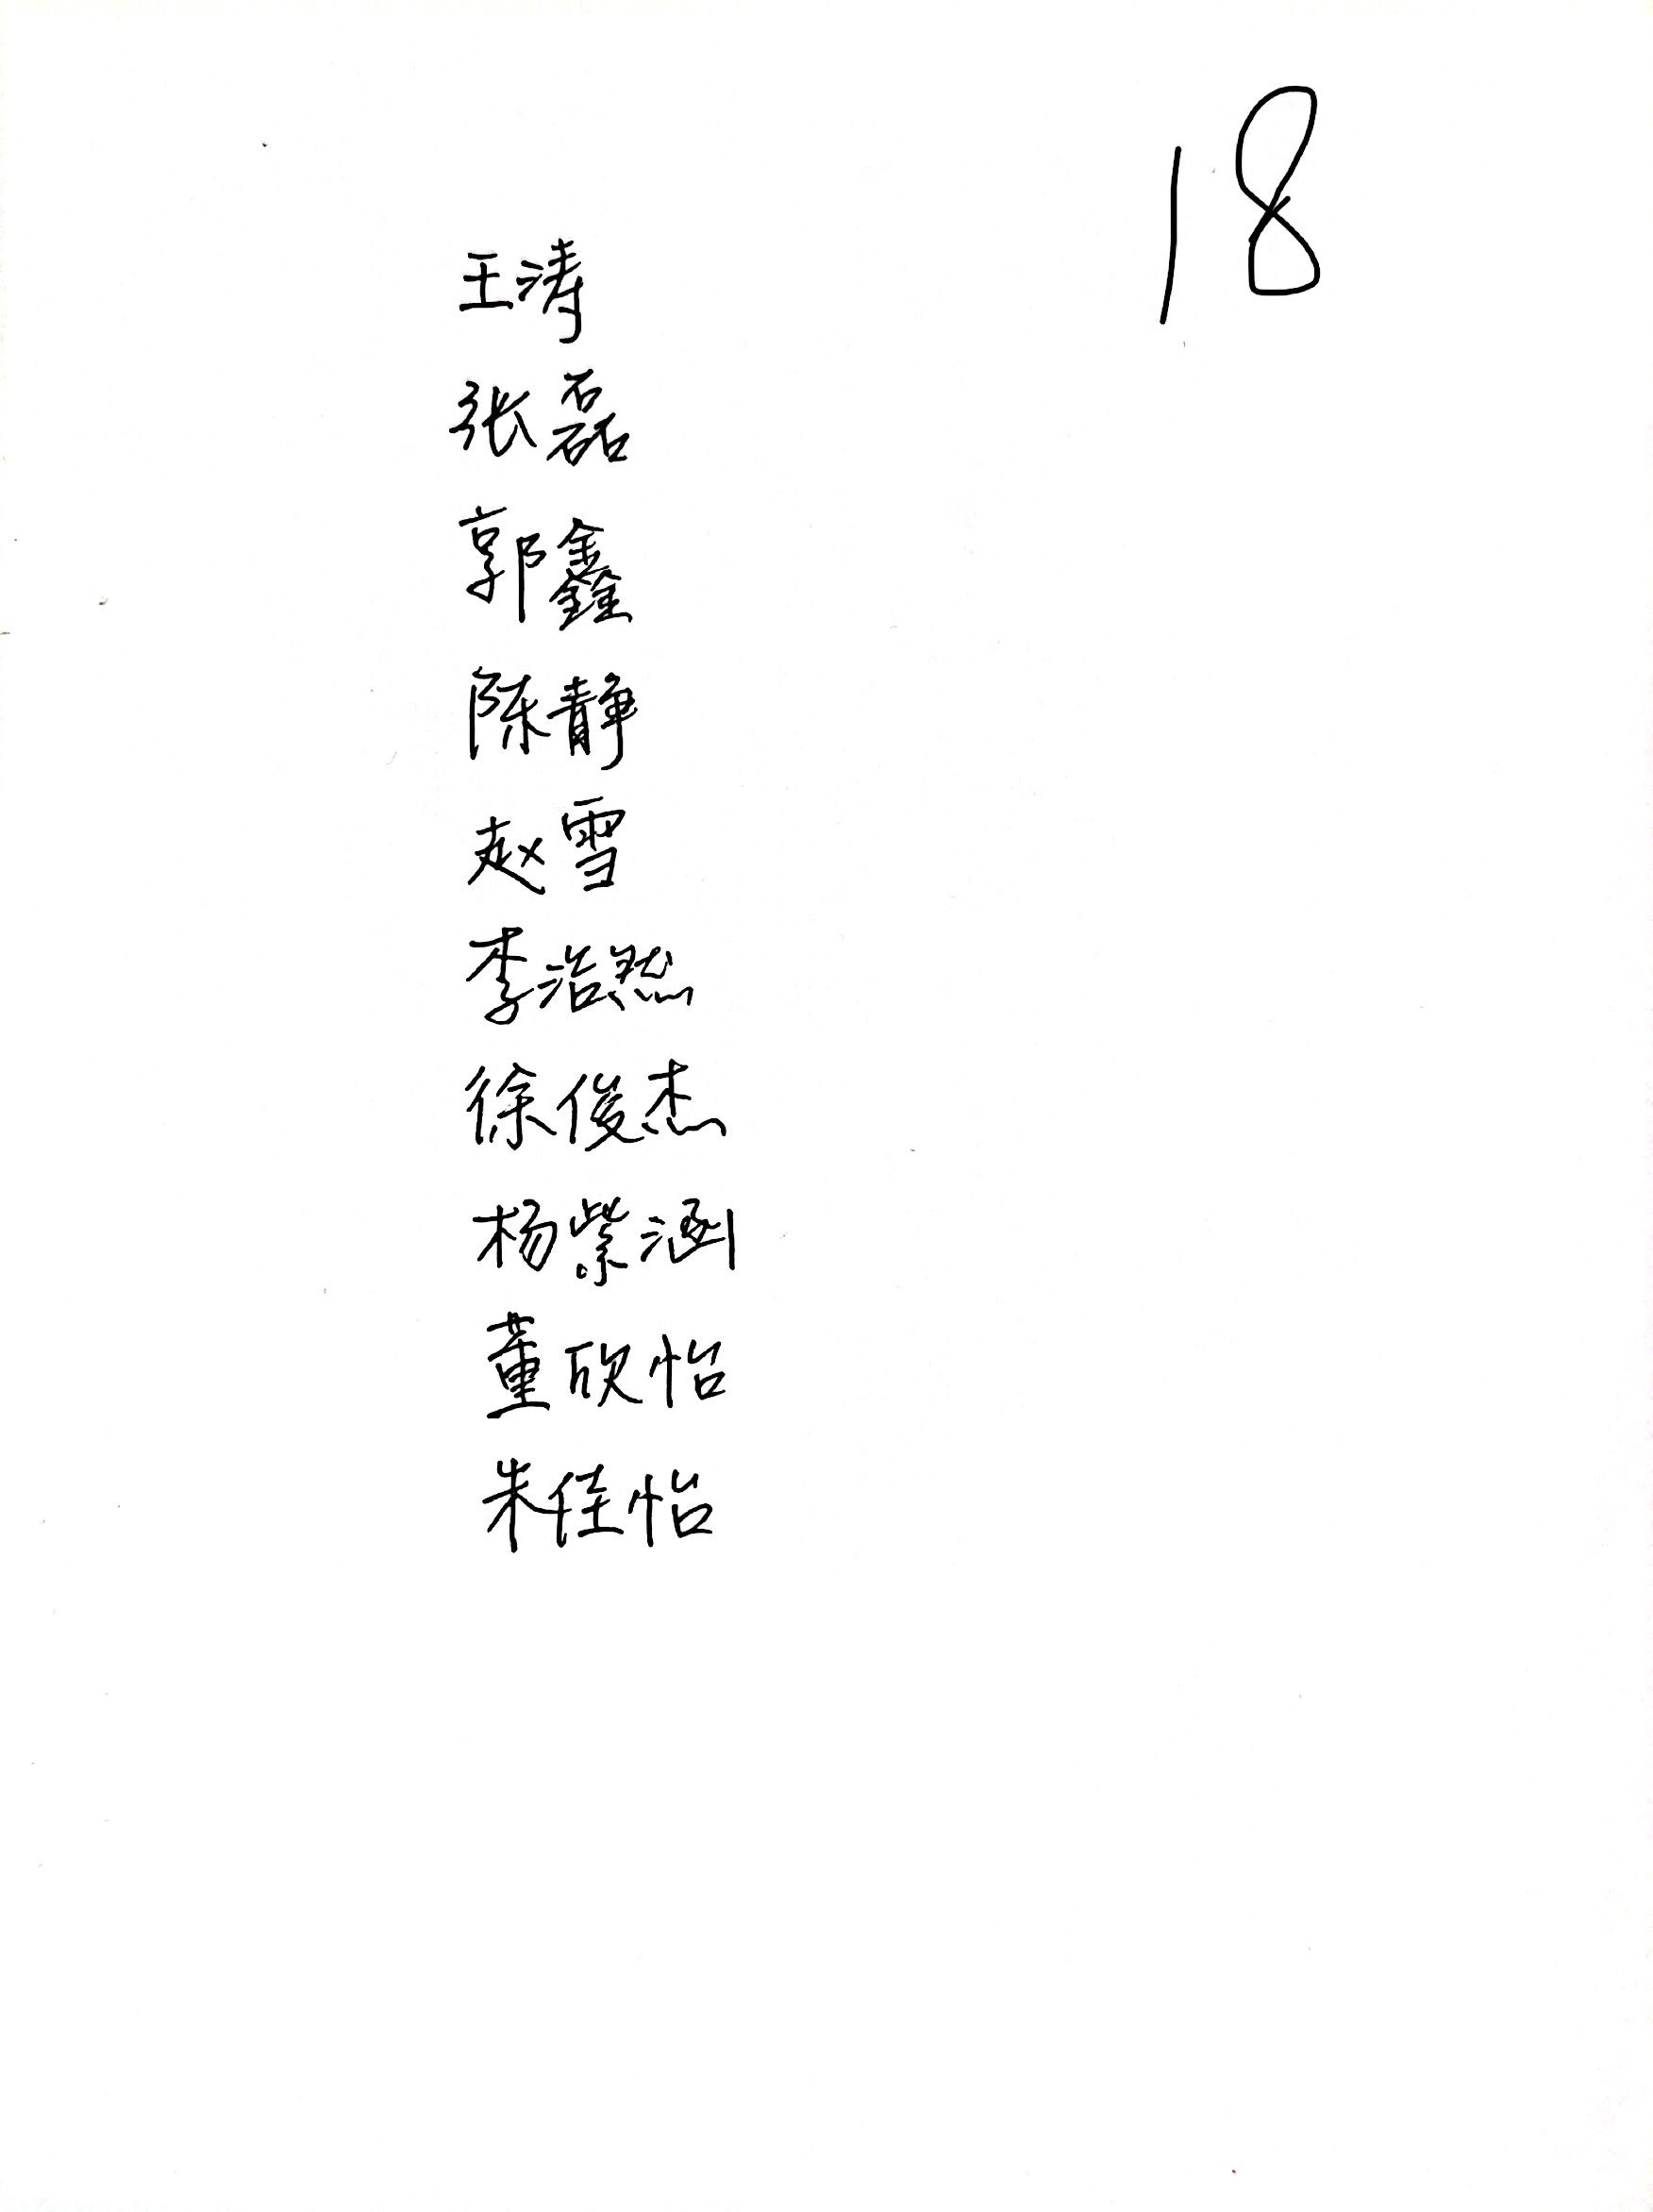 18
王涛
张磊
郭鑫
陈静
赵雪
李浩然
徐俊杰
杨紫涵
董欣怡
朱佳怡